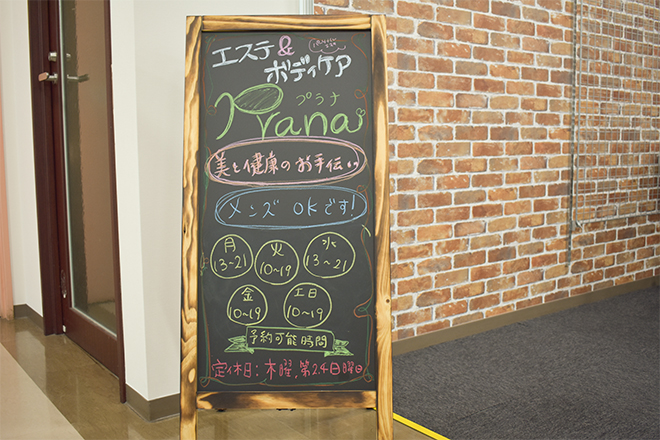 エステ&
ボディケア
プラナ
Prana
美と健康のお手伝い
メンズ OKです!
月
13~21
火
10~19
水
13~21
金
10~19
土日
10~19
予約可能時間
定休日:木曜,第2.4日曜日